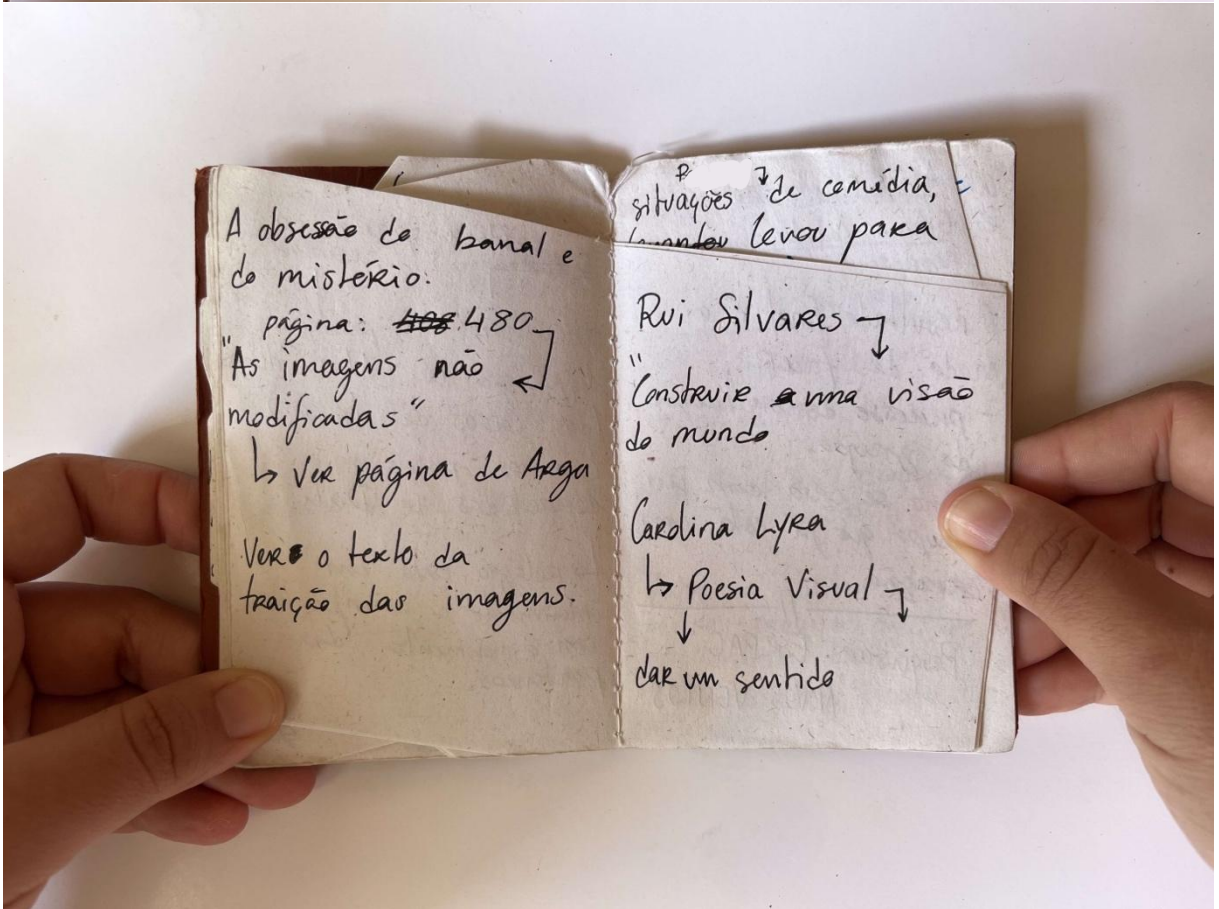 A obsessão do banal e
do mistério.
página: 480
"As imagens não
modificadas"
↳ Ver página de Arga
Ver o texto da
traição das imagens.
situações de comédia,
levou para
Rui Silvares
"Construir uma visão
do mundo
Carolina Lyra
↳ Poesia Visual
↓
dar um sentido